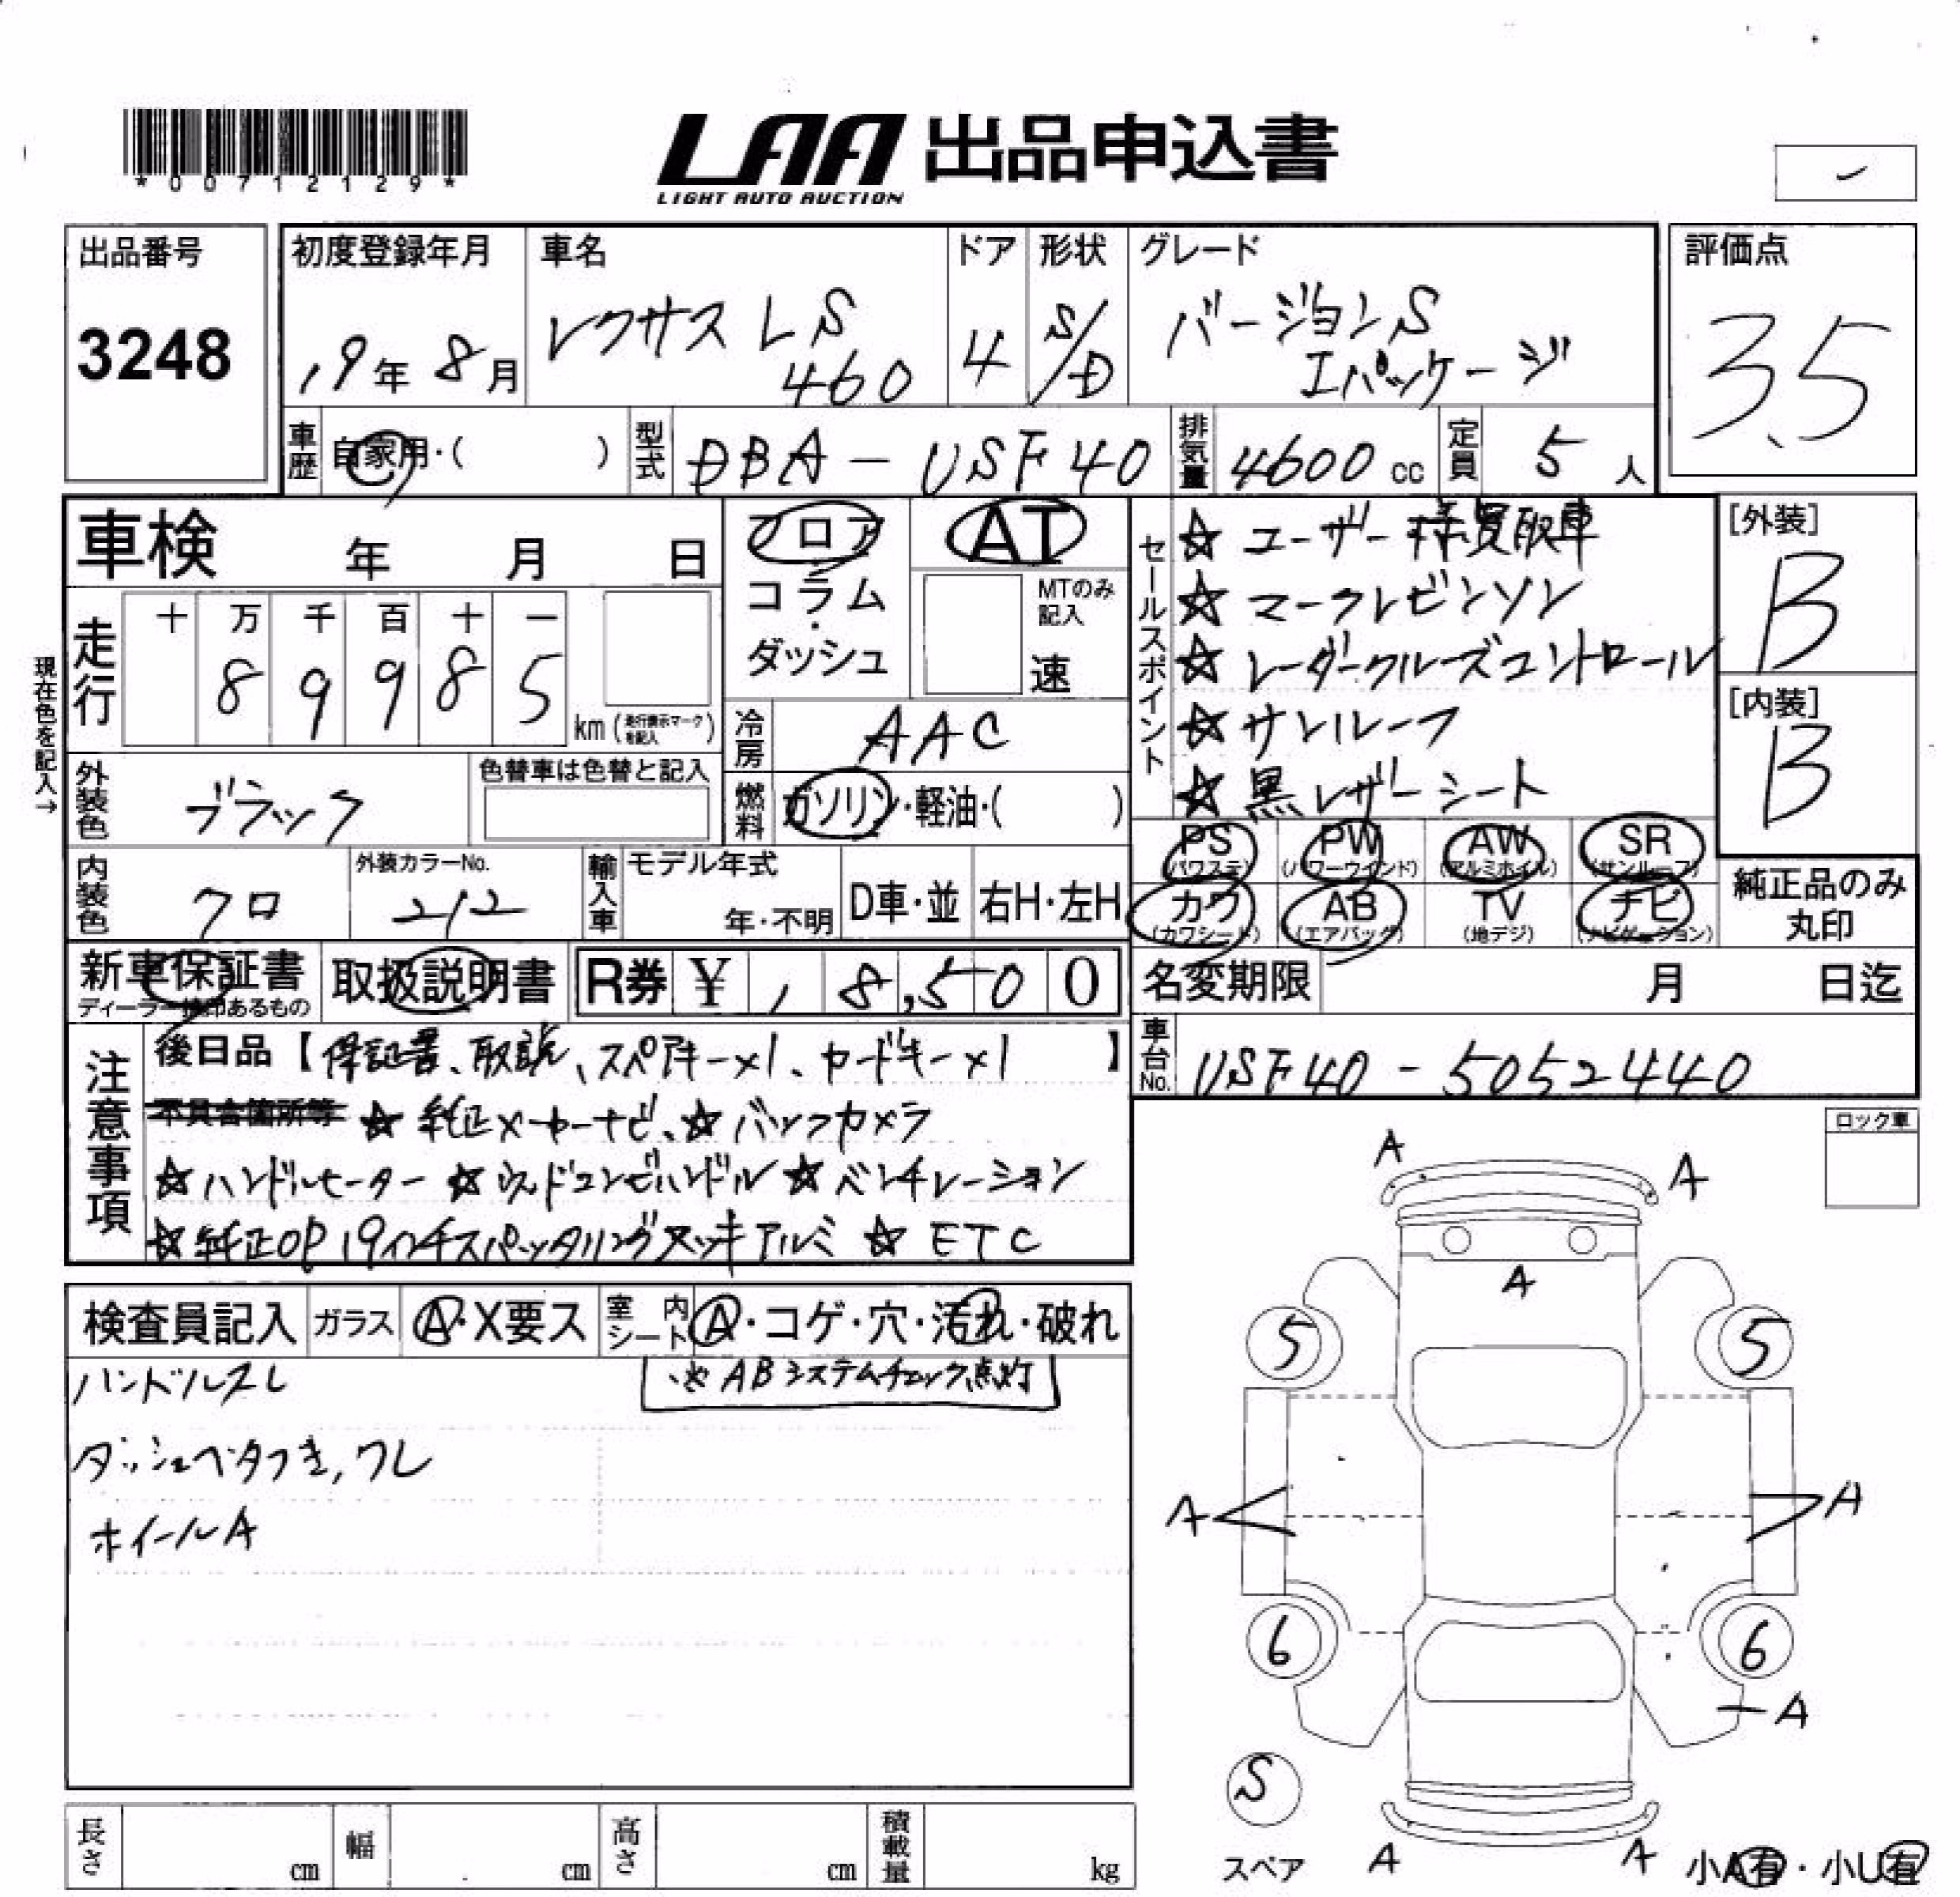 *00712129*
LAA 出品申込書
LIGHT AUTO AUCTION
出品番号
3248
初度登録年月
19年 8月
車名
レクサス LS
460
ドア
4
形状
S/D
グレード
バージョンS
Iパッケージ
評価点
3.5
車歴 自家用・( )
型式 DBA-USF40
排気量 4600 cc
定員 5 人
車検 年 月 日
フロア
コラム・
ダッシュ
AT
MTのみ
記入
速
セールスポイント
☆ユーザー様買取車
☆マークレビンソン
☆レーダークルーズコントロール
☆サンルーフ
☆黒レザーシート
[外装]
B
[内装]
B
現在色を記入→
走行
十 万 千 百 十 一
8 9 9 8 5
km (走行表示マークを記入)
冷房 AAC
外装色 ブラック
色替車は色替と記入
燃料 ガソリン・軽油・( )
内装色 クロ
外装カラーNo.
212
輸入車
モデル年式
年・不明
D車・並
右H・左H
PS (パワステ)
PW (パワーウインド)
AW (アルミホイル)
SR (サンルーフ)
カワ (カワシート)
AB (エアバッグ)
TV (地デジ)
ナビ (ナビゲーション)
純正品のみ
丸印
新車保証書
ディーラー捺印あるもの
取扱説明書
R券 ¥ 1 8,5 0 0
名変期限 月 日迄
車台No. USF40-5052440
注意事項
後日品【保証書、取説、スペアキー×1、カードキー×1】
不具合箇所等 ☆純正メーカーナビ、☆バックカメラ
☆ハンドルヒーター ☆ウッドコンビハンドル ☆ベンチレーション
☆純正OP 19インチスパッタリングメッキアルミ ☆ETC
ロック車
検査員記入
ガラス A・X要ス
室内シート A・コゲ・穴・汚れ・破れ
ハンドルスレ
※ABシステムチェック点灯
ダッシュベタつき,ワレ
ホイールA
A
A
A
5
5
A
A
6
6
A
S
スペア
A
A
小A有・小U有
長さ cm
幅 cm
高さ cm
積載量 kg